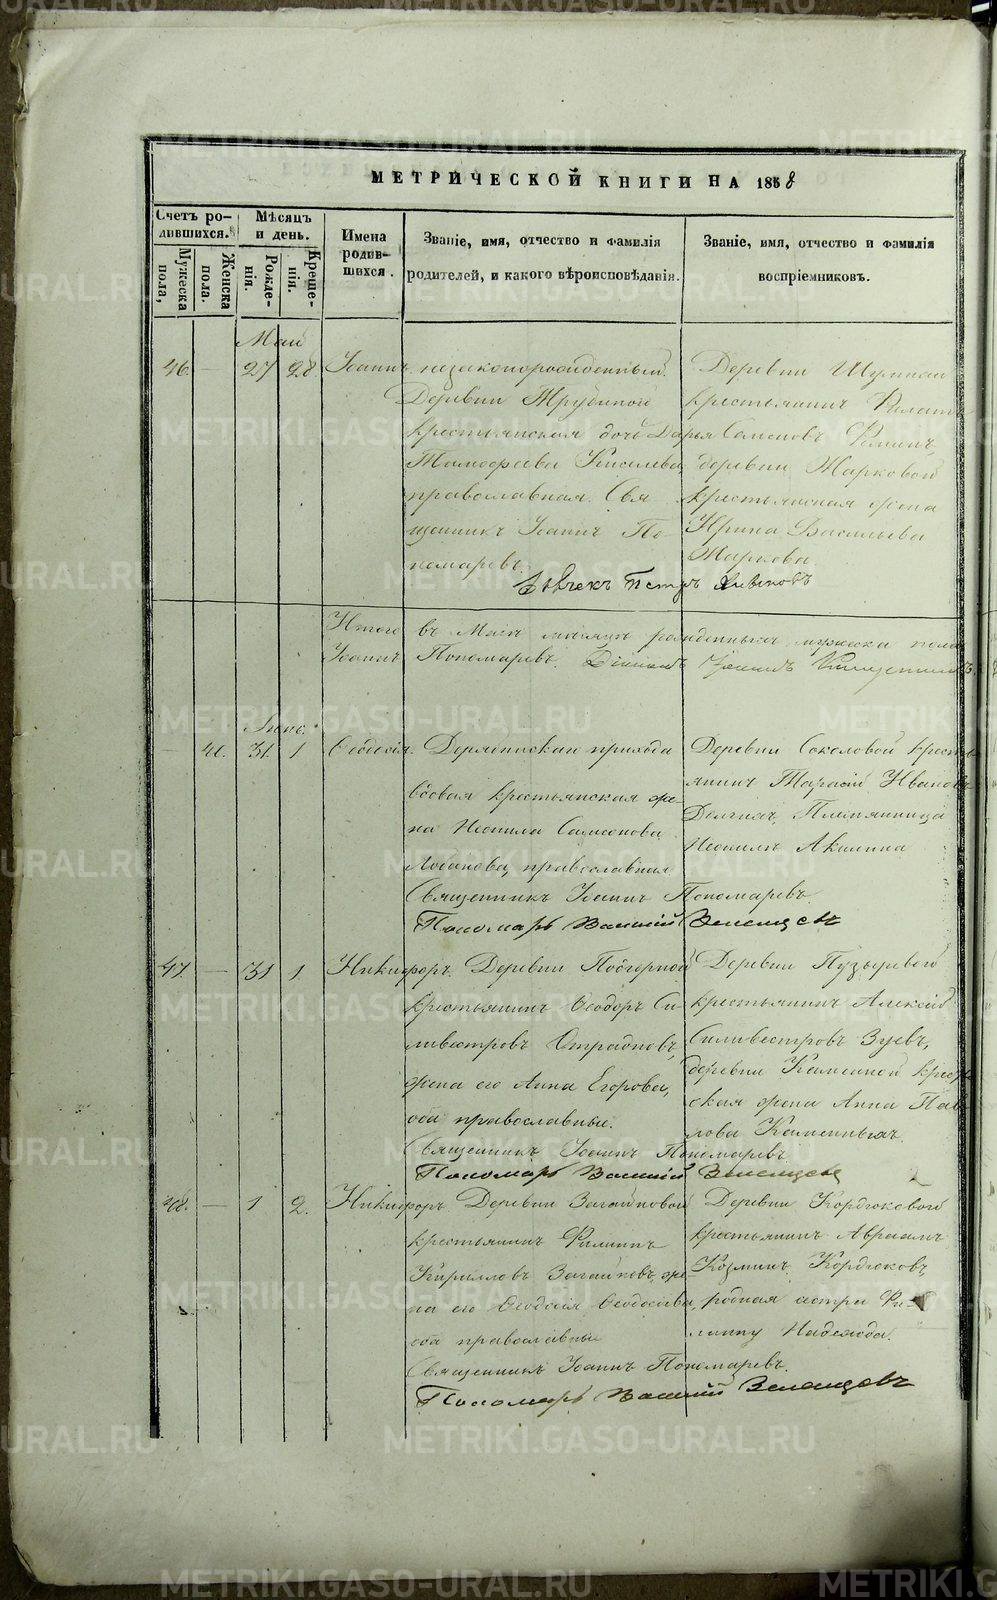 МЕТРИЧЕСКОЙ КНИГИ НА 1858
Счетъ ро-
дившихся.
Мѣсяцъ
и день.
Имена
родив-
шихся.
Званіе, имя, отчество и фамилія
родителей, и какого вѣроисповѣданія.
Званіе, имя, отчество и фамилія
воспріемниковъ.
Мужеска
пола,
Женска
пола.
Рожде-
нія.
Креще-
нія.
Май
46. — 27 28. Іоаннъ незаконнорожденный.
Деревни Трубиной
крестьянская дочь Дарья
Тимофеева Киселева
православная. Свя
щенникъ Іоаннъ По
номаревъ.
Деревни
крестьянинъ
Семеновъ
деревни Жарковой
крестьянская жена
Ирина Васильева
Жаркова
Дьячекъ Петръ
Итого въ Маѣ мѣсяцѣ рожденныхъ мужеска пола
Іоаннъ Пономаревъ.
Іюнь.
— 41. 31. 1 Ѳеодосія. прихода
вдовая крестьянская же-
на Неонила Самсонова
православная
Священникъ Іоаннъ Пономаревъ
Пономарь Василій Зеленцовъ
Деревни Соколовой кресть
янинъ Тарасій Ивановъ
Долгихъ, Племянница
Неонилы Акилина
47. — 31 1 Никифоръ. Деревни Подгорной
крестьянинъ Ѳеодоръ Си
ливестровъ Отрадновъ,
жена его Анна Егорова,
оба православные.
Священникъ Іоаннъ Пономаревъ
Пономарь Василій Зеленцовъ
Деревни Пузыревой
крестьянинъ Алексѣй
Силивестровъ Зуевъ,
деревни Каменной крестьян
ская жена Анна Пав
лова Каменныхъ.
48. — 1 2. Никифоръ Деревни Загайновой
крестьянинъ Филиппъ
Кирилловъ Загайновъ, же-
на его Ѳеодосія Ѳеодосіева,
оба православные
Священникъ Іоаннъ Пономаревъ.
Пономарь Василій Зеленцовъ
Деревни Кордюковой
крестьянинъ Авраамъ
Козминъ Кордюковъ,
родная сестра Фи-
липпу Надежда.
METRIKI.GASO-URAL.RU